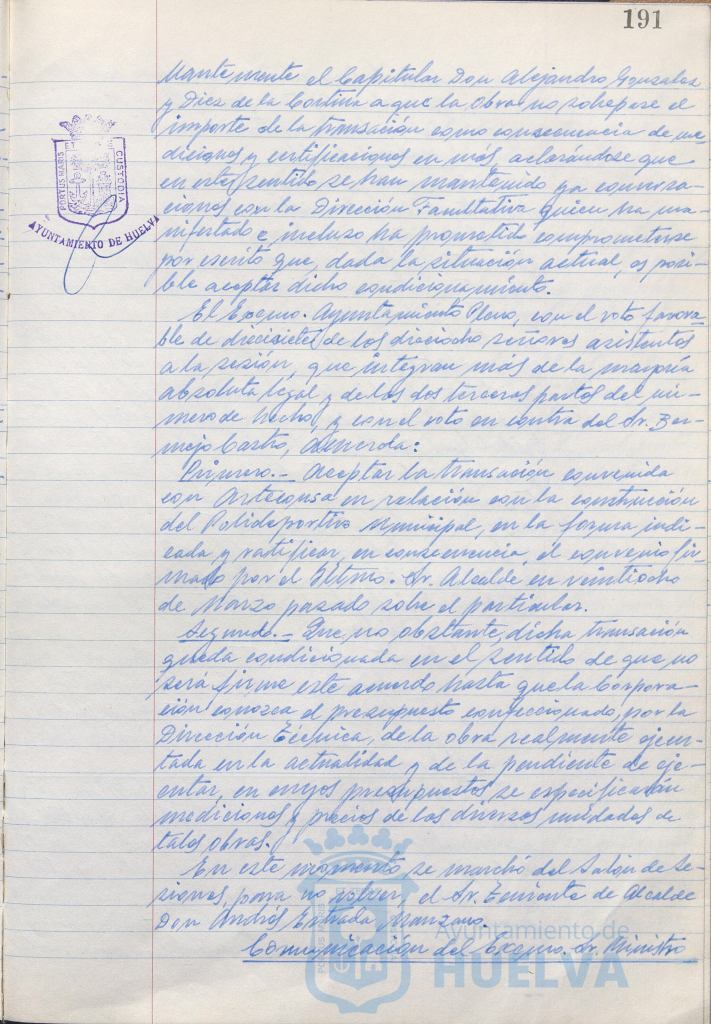 191
mantemente el Capitular Don Alejandro Gonzalez
y Diez de la Cortina a que la obra no sobrepase el
importe de la transación como consecuencia de me-
diciones y certificaciones en más, aclarándose que
en este sentido se han mantenido ya conversa-
ciones con la Dirección Facultativa quien ha ma-
nifestado e incluso ha prometido comprometerse
por escrito que, dada la situación actual, es posi-
ble aceptar dicho condicionamiento.
El Excmo. Ayuntamiento Pleno, con el voto favora-
ble de diecisiete de los dieciocho señores asistentes
a la sesión, que integran más de la mayoría
absoluta legal y de las dos terceras partes del nú-
mero de hecho, y con el voto en contra del Sr. Ber-
mejo Castro, Acuerda:
Primero.- Aceptar la transación convenida
con Arteconsa en relación con la construcción
del Polideportivo Municipal, en la forma indi-
cada y ratificar, en consecuencia, el convenio fir-
mado por el Iltmo. Sr. Alcalde en veintiocho
de Marzo pasado sobre el particular.
Segundo.- Que no obstante, dicha transación
queda condicionada en el sentido de que no
será firme este acuerdo hasta que la Corpora-
ción conozca el presupuesto confeccionado, por la
Dirección Técnica, de la obra realmente ejecu-
tada en la actualidad y de la pendiente de eje-
cutar, en cuyos presupuestos se especificarán
mediciones y precios de las diversas unidades de
tales obras.
En este momento se marchó del Salón de Se-
siones, para no volver, el Sr. Teniente de Alcalde
Don Andrés Estrada Manzano.
Comunicación del Excmo. Sr. Ministro
PORTUS MARIS
CUSTODIA
AYUNTAMIENTO DE HUELVA
Ayuntamiento de
HUELVA